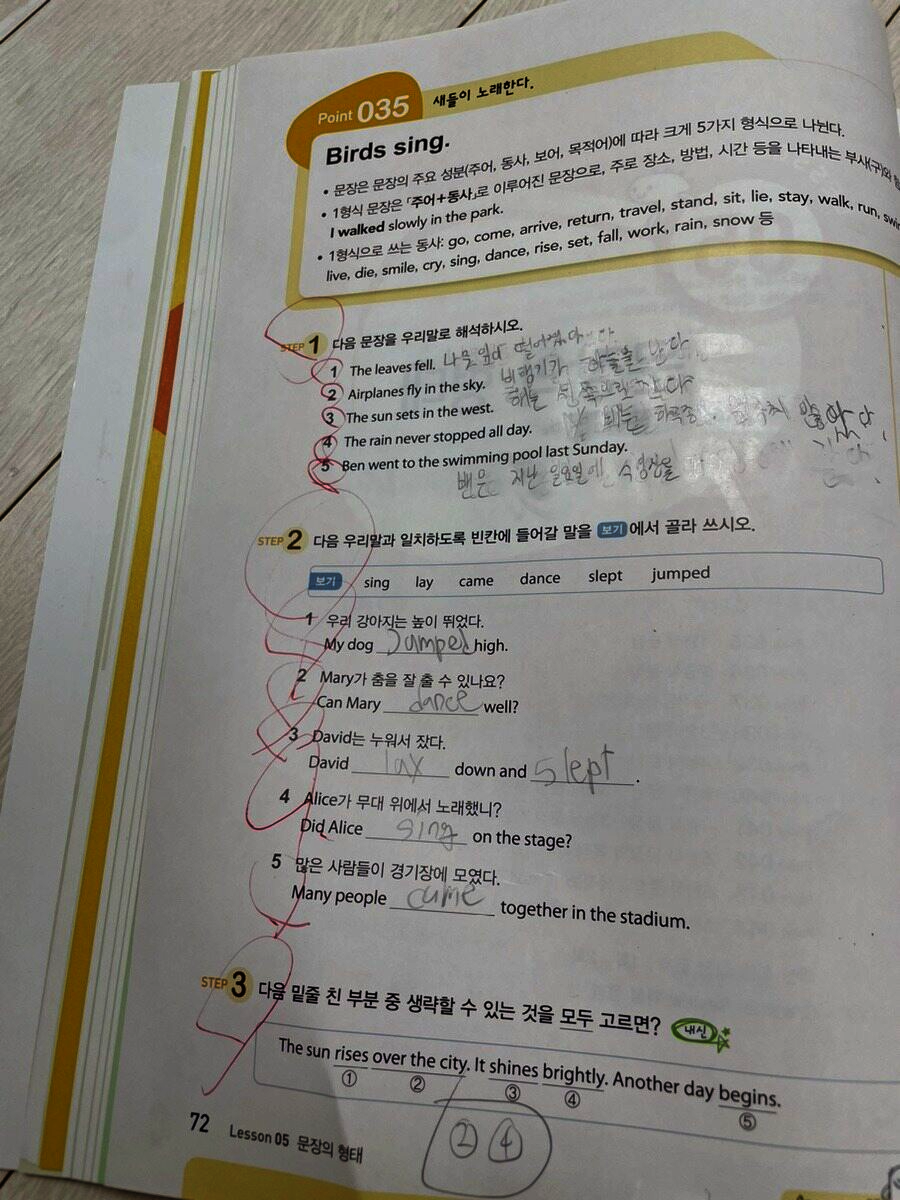 Point 035 새들이 노래한다.
Birds sing.
• 문장은 문장의 주요 성분(주어, 동사, 보어, 목적어)에 따라 크게 5가지 형식으로 나뉜다.
• 1형식 문장은 「주어+동사」로 이루어진 문장으로, 주로 장소, 방법, 시간 등을 나타내는 부사(구)와
I walked slowly in the park.
• 1형식으로 쓰는 동사: go, come, arrive, return, travel, stand, sit, lie, stay, walk, run, swim
live, die, smile, cry, sing, dance, rise, set, fall, work, rain, snow 등
STEP 1 다음 문장을 우리말로 해석하시오.
1 The leaves fell. 나뭇잎이 떨어졌다
2 Airplanes fly in the sky. 비행기가 하늘을 난다
3 The sun sets in the west. 해는 서쪽으로 진다
4 The rain never stopped all day.
5 Ben went to the swimming pool last Sunday.
벤은 지난 일요일에 수영장을 갔다.
STEP 2 다음 우리말과 일치하도록 빈칸에 들어갈 말을 보기 에서 골라 쓰시오.
보기 sing lay came dance slept jumped
1 우리 강아지는 높이 뛰었다.
My dog Jumped high.
2 Mary가 춤을 잘 출 수 있나요?
Can Mary dance well?
3 David는 누워서 잤다.
David lay down and slept.
4 Alice가 무대 위에서 노래했니?
Did Alice sing on the stage?
5 많은 사람들이 경기장에 모였다.
Many people came together in the stadium.
STEP 3 다음 밑줄 친 부분 중 생략할 수 있는 것을 모두 고르면? 내신
The sun rises over the city. It shines brightly. Another day begins.
① ② ③ ④ ⑤
② ④
72 Lesson 05 문장의 형태